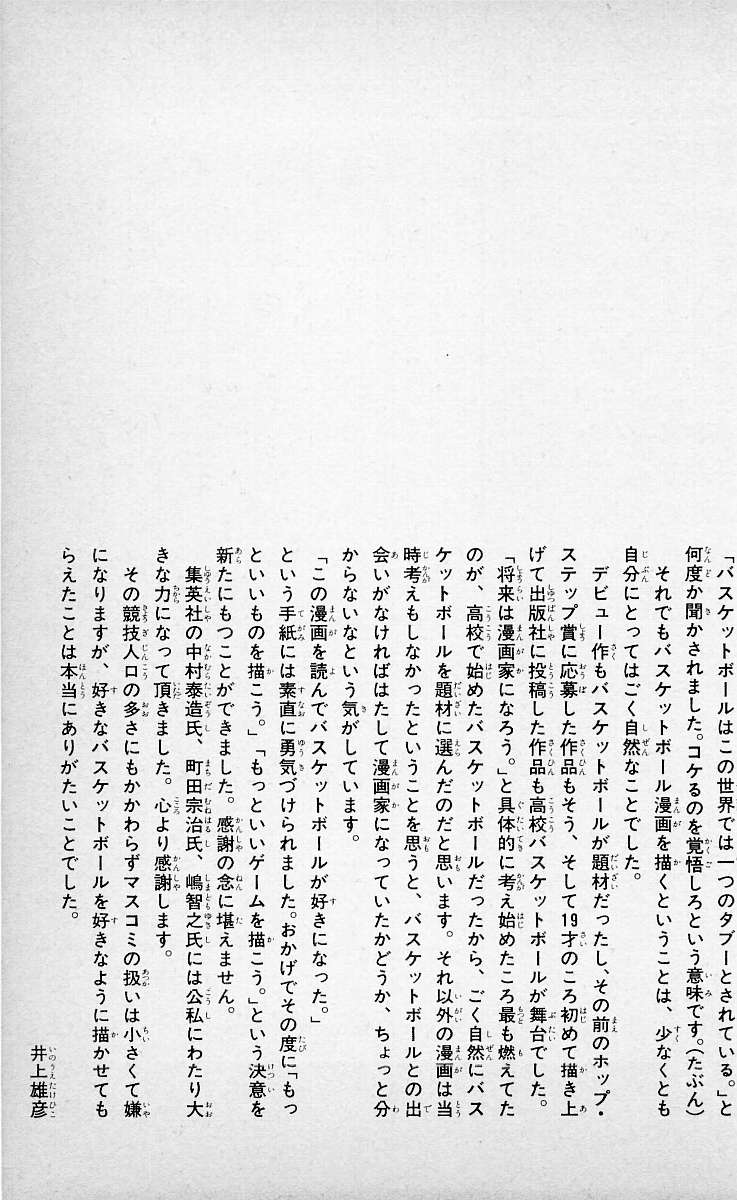 「バスケットボールはこの世界では一つのタブーとされている。」と
何度か聞かされました。コケるのを覚悟しろという意味です。(たぶん)
それでもバスケットボール漫画を描くということは、少なくとも
自分にとってはごく自然なことでした。
デビュー作もバスケットボールが題材だったし、その前のホップ・
ステップ賞に応募した作品もそう、そして19才のころ初めて描き上
げて出版社に投稿した作品も高校バスケットボールが舞台でした。
「将来は漫画家になろう。」と具体的に考え始めたころ最も燃えてた
のが、高校で始めたバスケットボールだったから、ごく自然にバス
ケットボールを題材に選んだのだと思います。それ以外の漫画は当
時考えもしなかったということを思うと、バスケットボールとの出
会いがなければはたして漫画家になっていたかどうか、ちょっと分
からないなという気がしています。
「この漫画を読んでバスケットボールが好きになった。」
という手紙には素直に勇気づけられました。おかげでその度に「もっ
といいものを描こう。」「もっといいゲームを描こう。」という決意を
新たにもつことができました。感謝の念に堪えません。
集英社の中村泰造氏、町田宗治氏、嶋智之氏には公私にわたり大
きな力になって頂きました。心より感謝します。
その競技人口の多さにもかかわらずマスコミの扱いは小さくて嫌
になりますが、好きなバスケットボールを好きなように描かせても
らえたことは本当にありがたいことでした。
井上雄彦